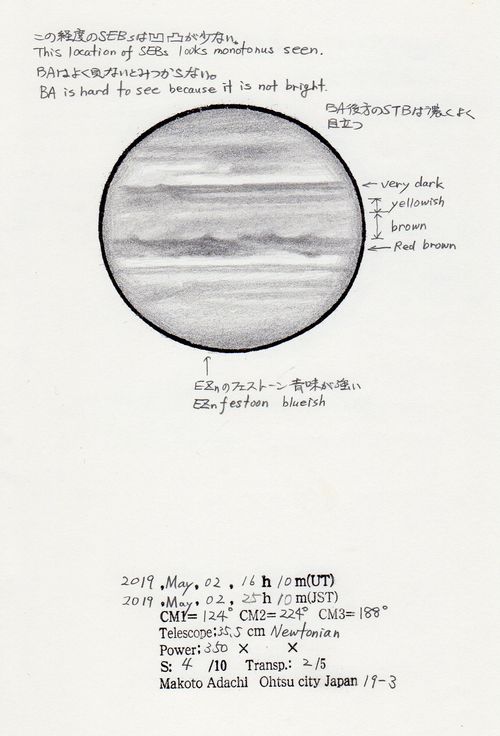 この経度のSEBsは凹凸が少ない。
This location of SEBs looks monotonus seen.
BAはよく見ないとみつからない。
BA is hard to see because it is not bright.
BA後方のSTBは濃くよく
目立つ
very dark
yellowish
brown
Red brown
EZnのフェストーン青味が強い
EZn festoon blueish
2019, May, 02, 16h 10m(UT)
2019, May, 02, 25h 10m(JST)
CM1= 124° CM2= 224° CM3= 188°
Telescope; 35.5 cm Newtonian
Power; 350 × ×
S: 4 /10 Transp.: 2/5
Makoto Adachi Ohtsu city Japan 19-3